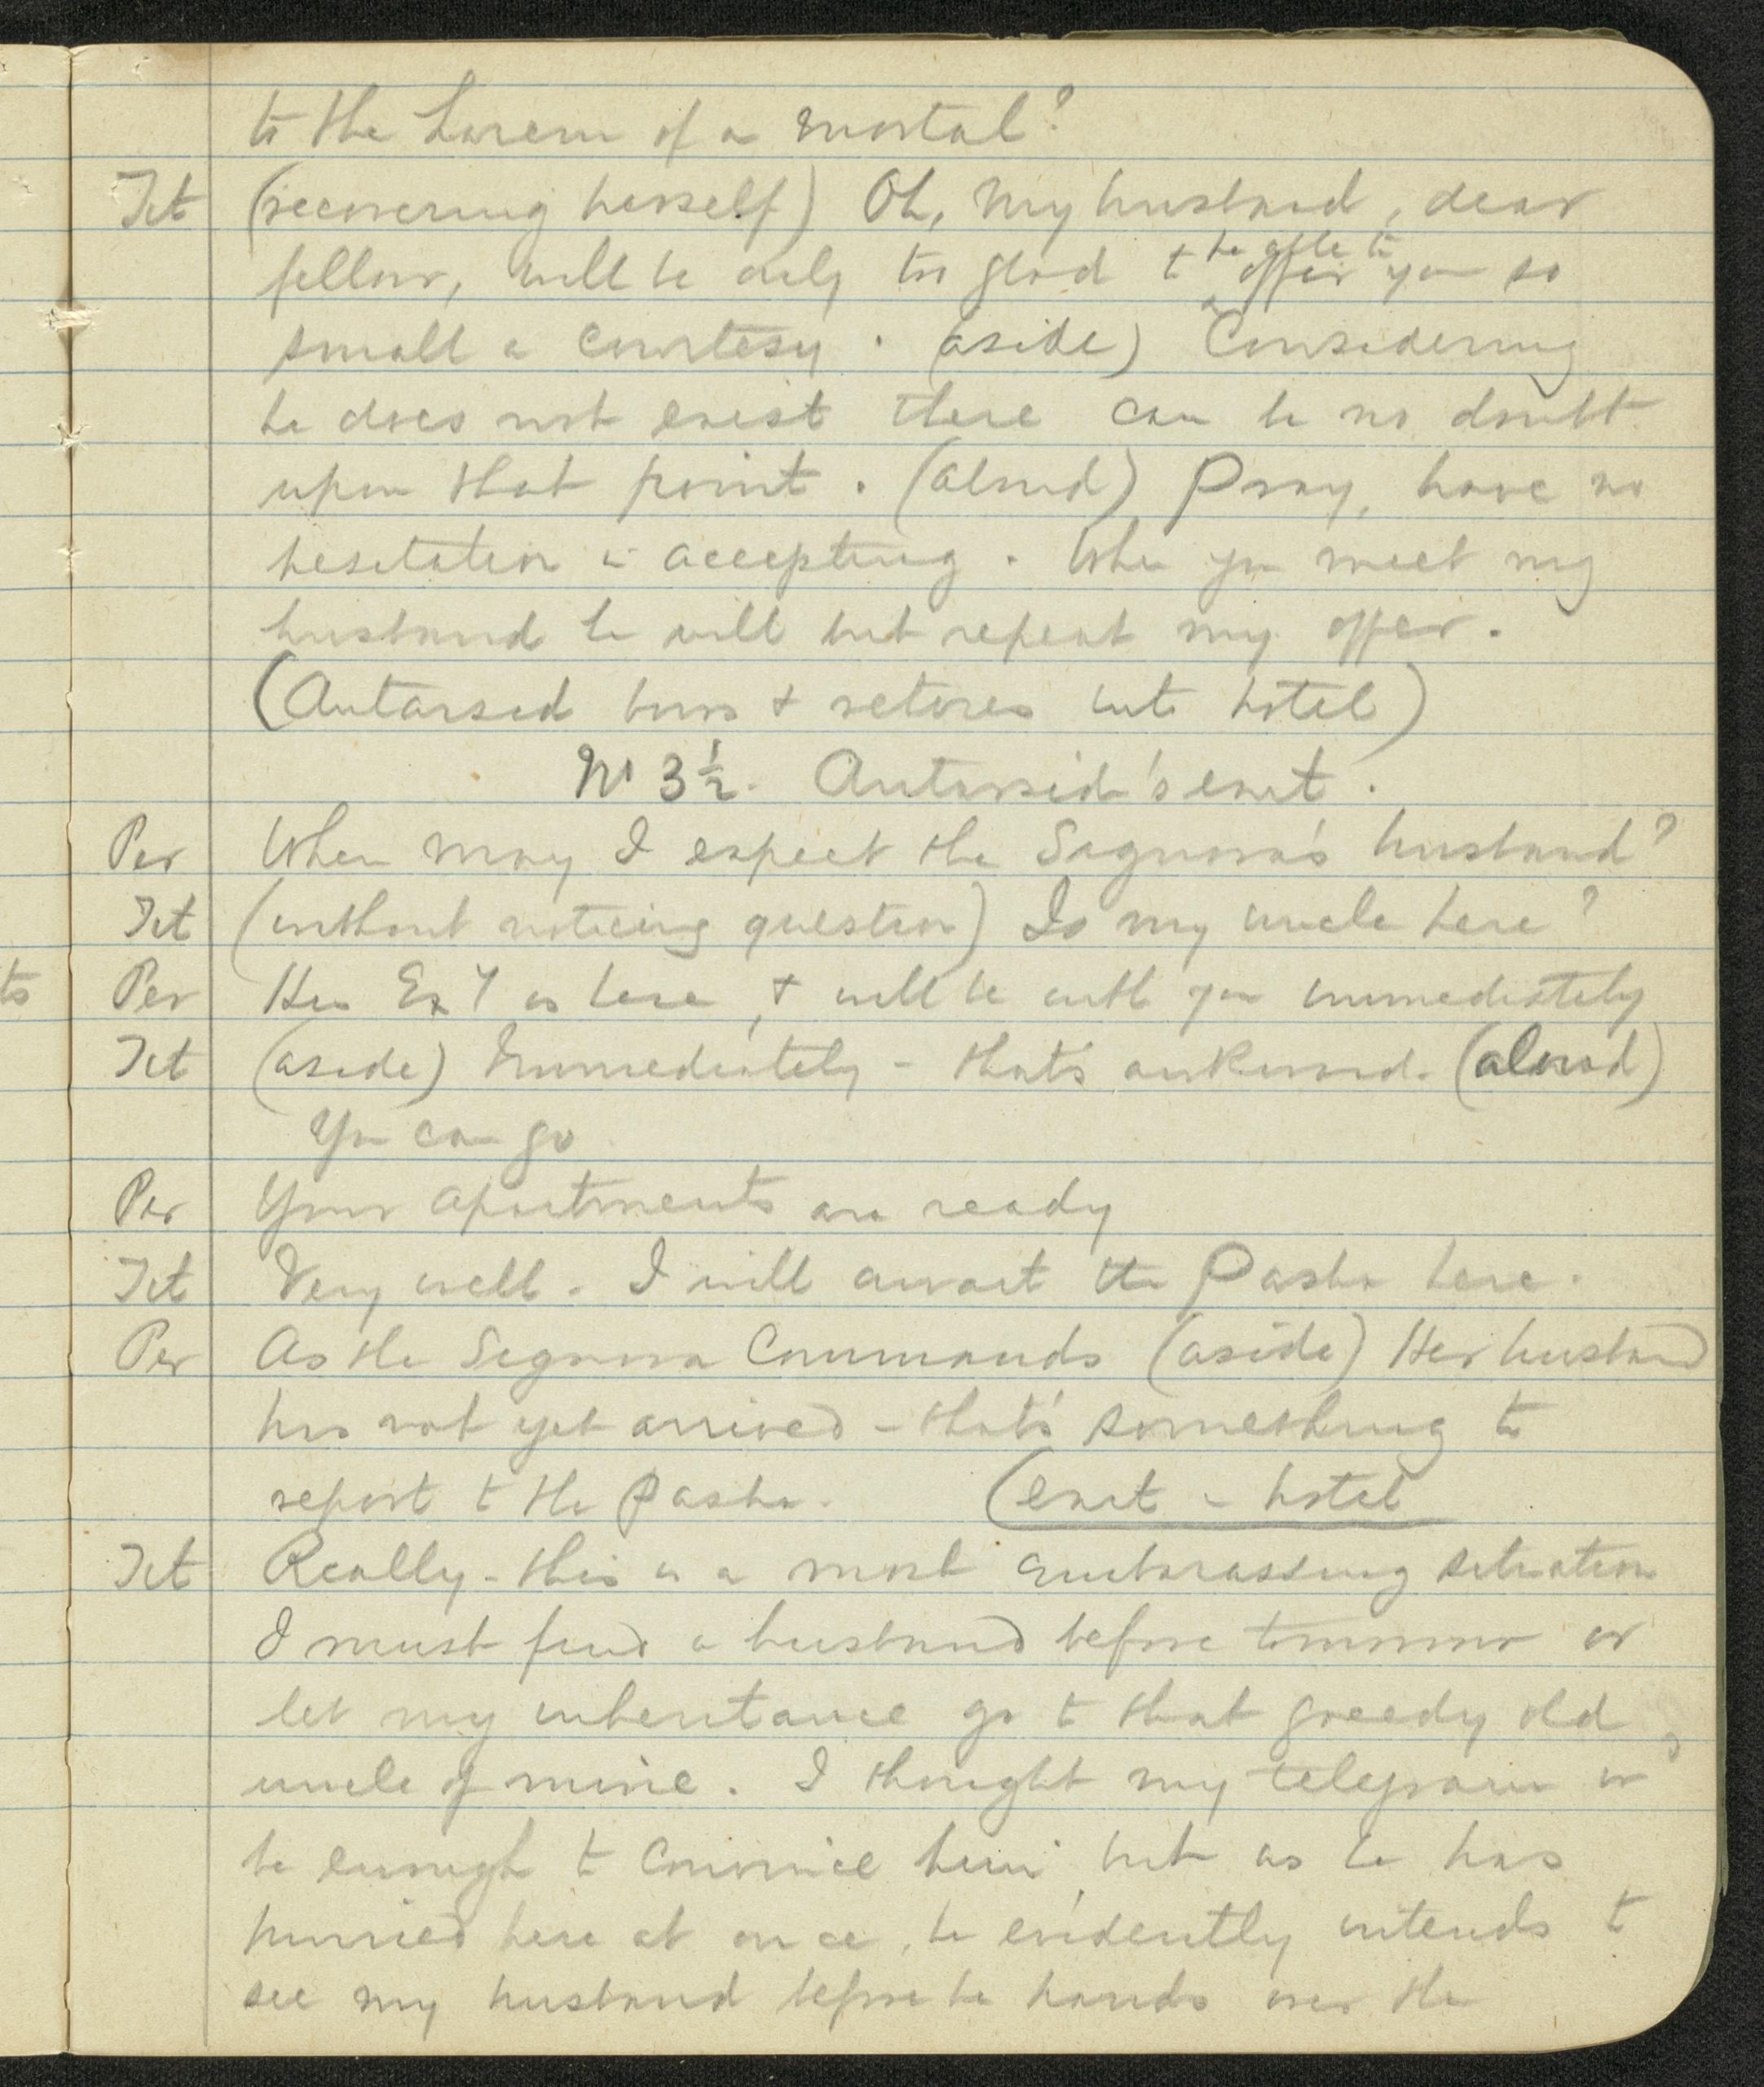 to the harem of a mortal?
Tet (recovering herself) Oh, my husband, dear
fellow, will be only too glad to be able to offer you so
small a courtesy. (aside) Considering
he does not exist there can be no doubt
upon that point. (aloud) Pray, have no
hesitation in accepting. When you meet my
husband he will but repeat my offer.
(Antarsid bows & retires into hotel)
No 3½. Antarsid's exit.
Per When may I expect the Signora's husband?
Tet (without noticing question) Is my uncle here?
Per His Exy is here, & will be with you immediately
Tet (aside) Immediately - that's awkward. (aloud)
You can go
Per Your apartments are ready
Tet Very well. I will await the Pasha here.
Per As the Signora Commands (aside) Her husband
has not yet arrived - that's something to
report to the Pasha. (exit in hotel
Tet Really - this is a most embarassing situation
I must find a husband before tomorrow or
let my inheritance go to that greedy old
uncle of mine. I thought my telegram wd
be enough to convince him, but as he has
hurried here at once, he evidently intends to
see my husband before he hands over the